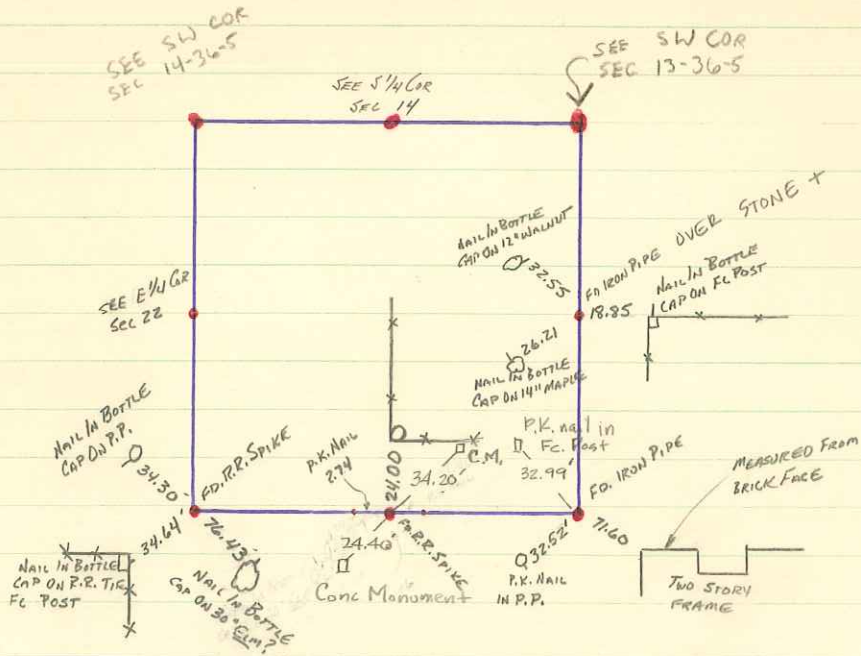 SEE SW COR
SEC 14-36-5
SEE S 1/4 COR
SEC 14
SEE SW COR
SEC 13-36-5
NAIL IN BOTTLE
CAP ON 12" WALNUT
32.55
FD IRON PIPE OVER STONE +
NAIL IN BOTTLE
CAP ON FC POST
18.85
SEE E 1/4 COR
SEC 22
26.21
NAIL IN BOTTLE
CAP ON 14" MAPLE
NAIL IN BOTTLE
CAP ON P.P.
34.30'
FD. R.R. SPIKE
P.K. NAIL
2.74
24.00
C.M.
34.20'
P.K. nail in
Fc. Post
32.99'
FD. IRON PIPE
MEASURED FROM
BRICK FACE
34.64'
76.43'
24.40'
FD. R.R. SPIKE
32.52'
71.60
NAIL IN BOTTLE
CAP ON R.R. TIE
FC POST
NAIL IN BOTTLE
CAP ON 30" ELM?
Conc Monument
P.K. NAIL
IN P.P.
TWO STORY
FRAME